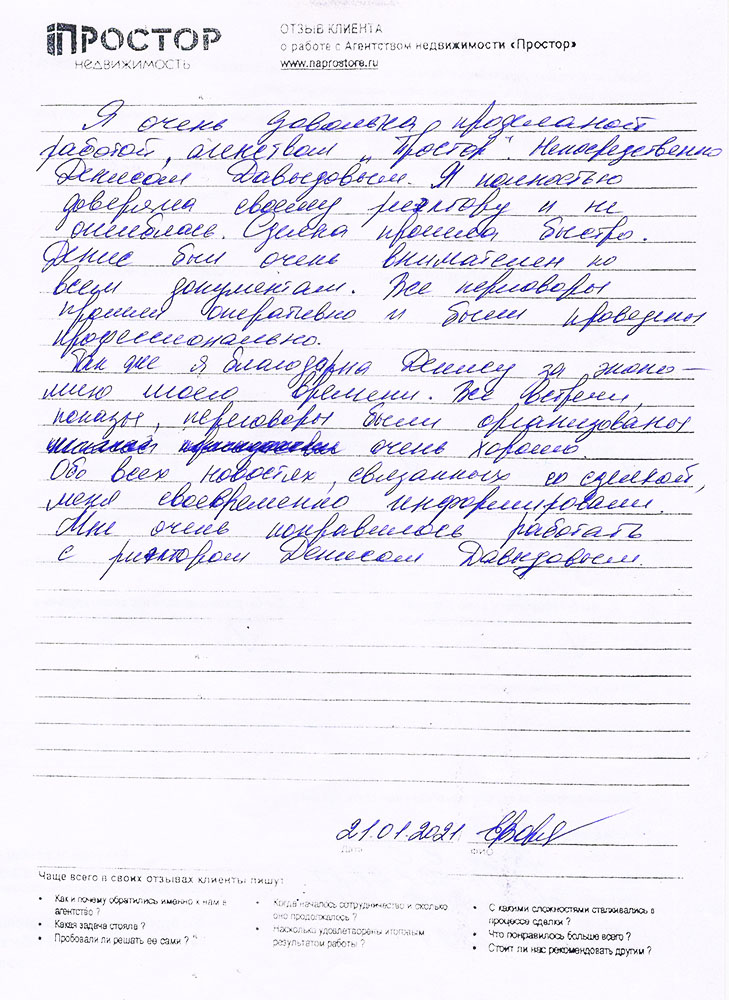 ПРОСТОР
недвижимость
ОТЗЫВ КЛИЕНТА
о работе с Агентством недвижимости «Простор»
www.naprostore.ru
Я очень довольна проделаной
работой, агенством „Простор". Непосредственно
Денисом Давыдовым. Я полностью
доверяла своему риэлтору и не
ошиблась. Сделка прошла быстро.
Денис был очень внимателен по
всем документам. Все переговоры
прошли оперативно и были проведены
профессионально.
Так же я благодарна Денису за эконо-
мию моего времени. Все встречи,
показы, переговоры были организованы
очень хорошо
Обо всех новостях, связанных со сделкой,
меня своевременно информировали.
Мне очень понравилось работать
с риэлтором Денисом Давыдовым.
21.01.2021
Дата
ФИО
Чаще всего в своих отзывах клиенты пишут:
• Как и почему обратились именно к нам в
агентство ?
• Какая задача стояла ?
• Пробовали ли решать ее сами ?
• Когда началось сотрудничество и сколько
оно продолжалось ?
• Насколько удовлетворены итоговым
результатом работы ?
• С какими сложностями сталкивались в
процессе сделки ?
• Что понравилось больше всего ?
• Стоит ли нас рекомендовать другим ?